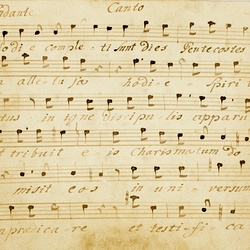 ndante Canto
Hodi e comple - ti sunt dies Pentecostes
a alle lu ja hodi e - Spiri
tus in igne discipulis apparu
et tribuit e is Charismatum do
misit eos in uni - versum
praedica - re et testi - fi ca